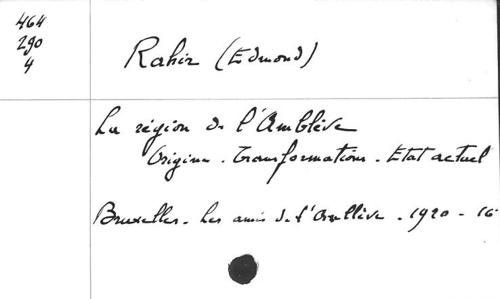 464
290
4
Rahir (Edmond)
La région de l'Amblève
Origine. Transformations. Etat actuel
Bruxelles. Les amis de l'Amblève. 1920 - 16